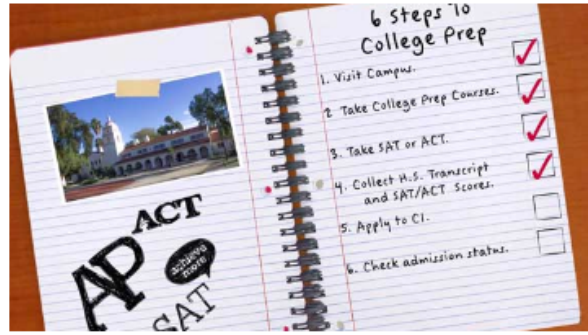 ACT
AP
achieve
more
SAT
6 Steps To
College Prep
1. Visit Campus.
2 Take College Prep Courses.
3. Take SAT or ACT.
4. Collect H.S. Transcript
and SAT/ACT Scores.
5. Apply to CI.
6. Check admission status.